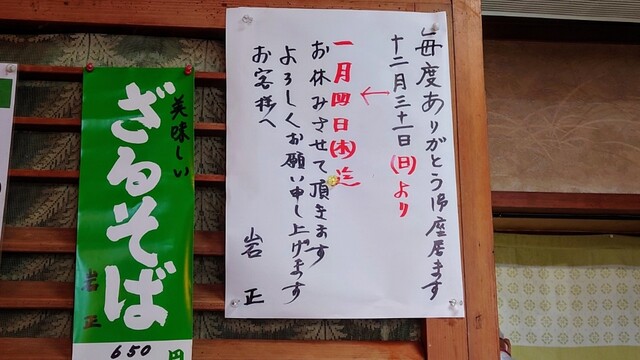 毎度ありがとう御座居ます
十二月三十一日(日)より
←
一月四日(木)迄
お休みさせて頂きます
よろしくお願い申し上げます
お客様へ
岩正
美味しい
ざるそば
岩正
650円